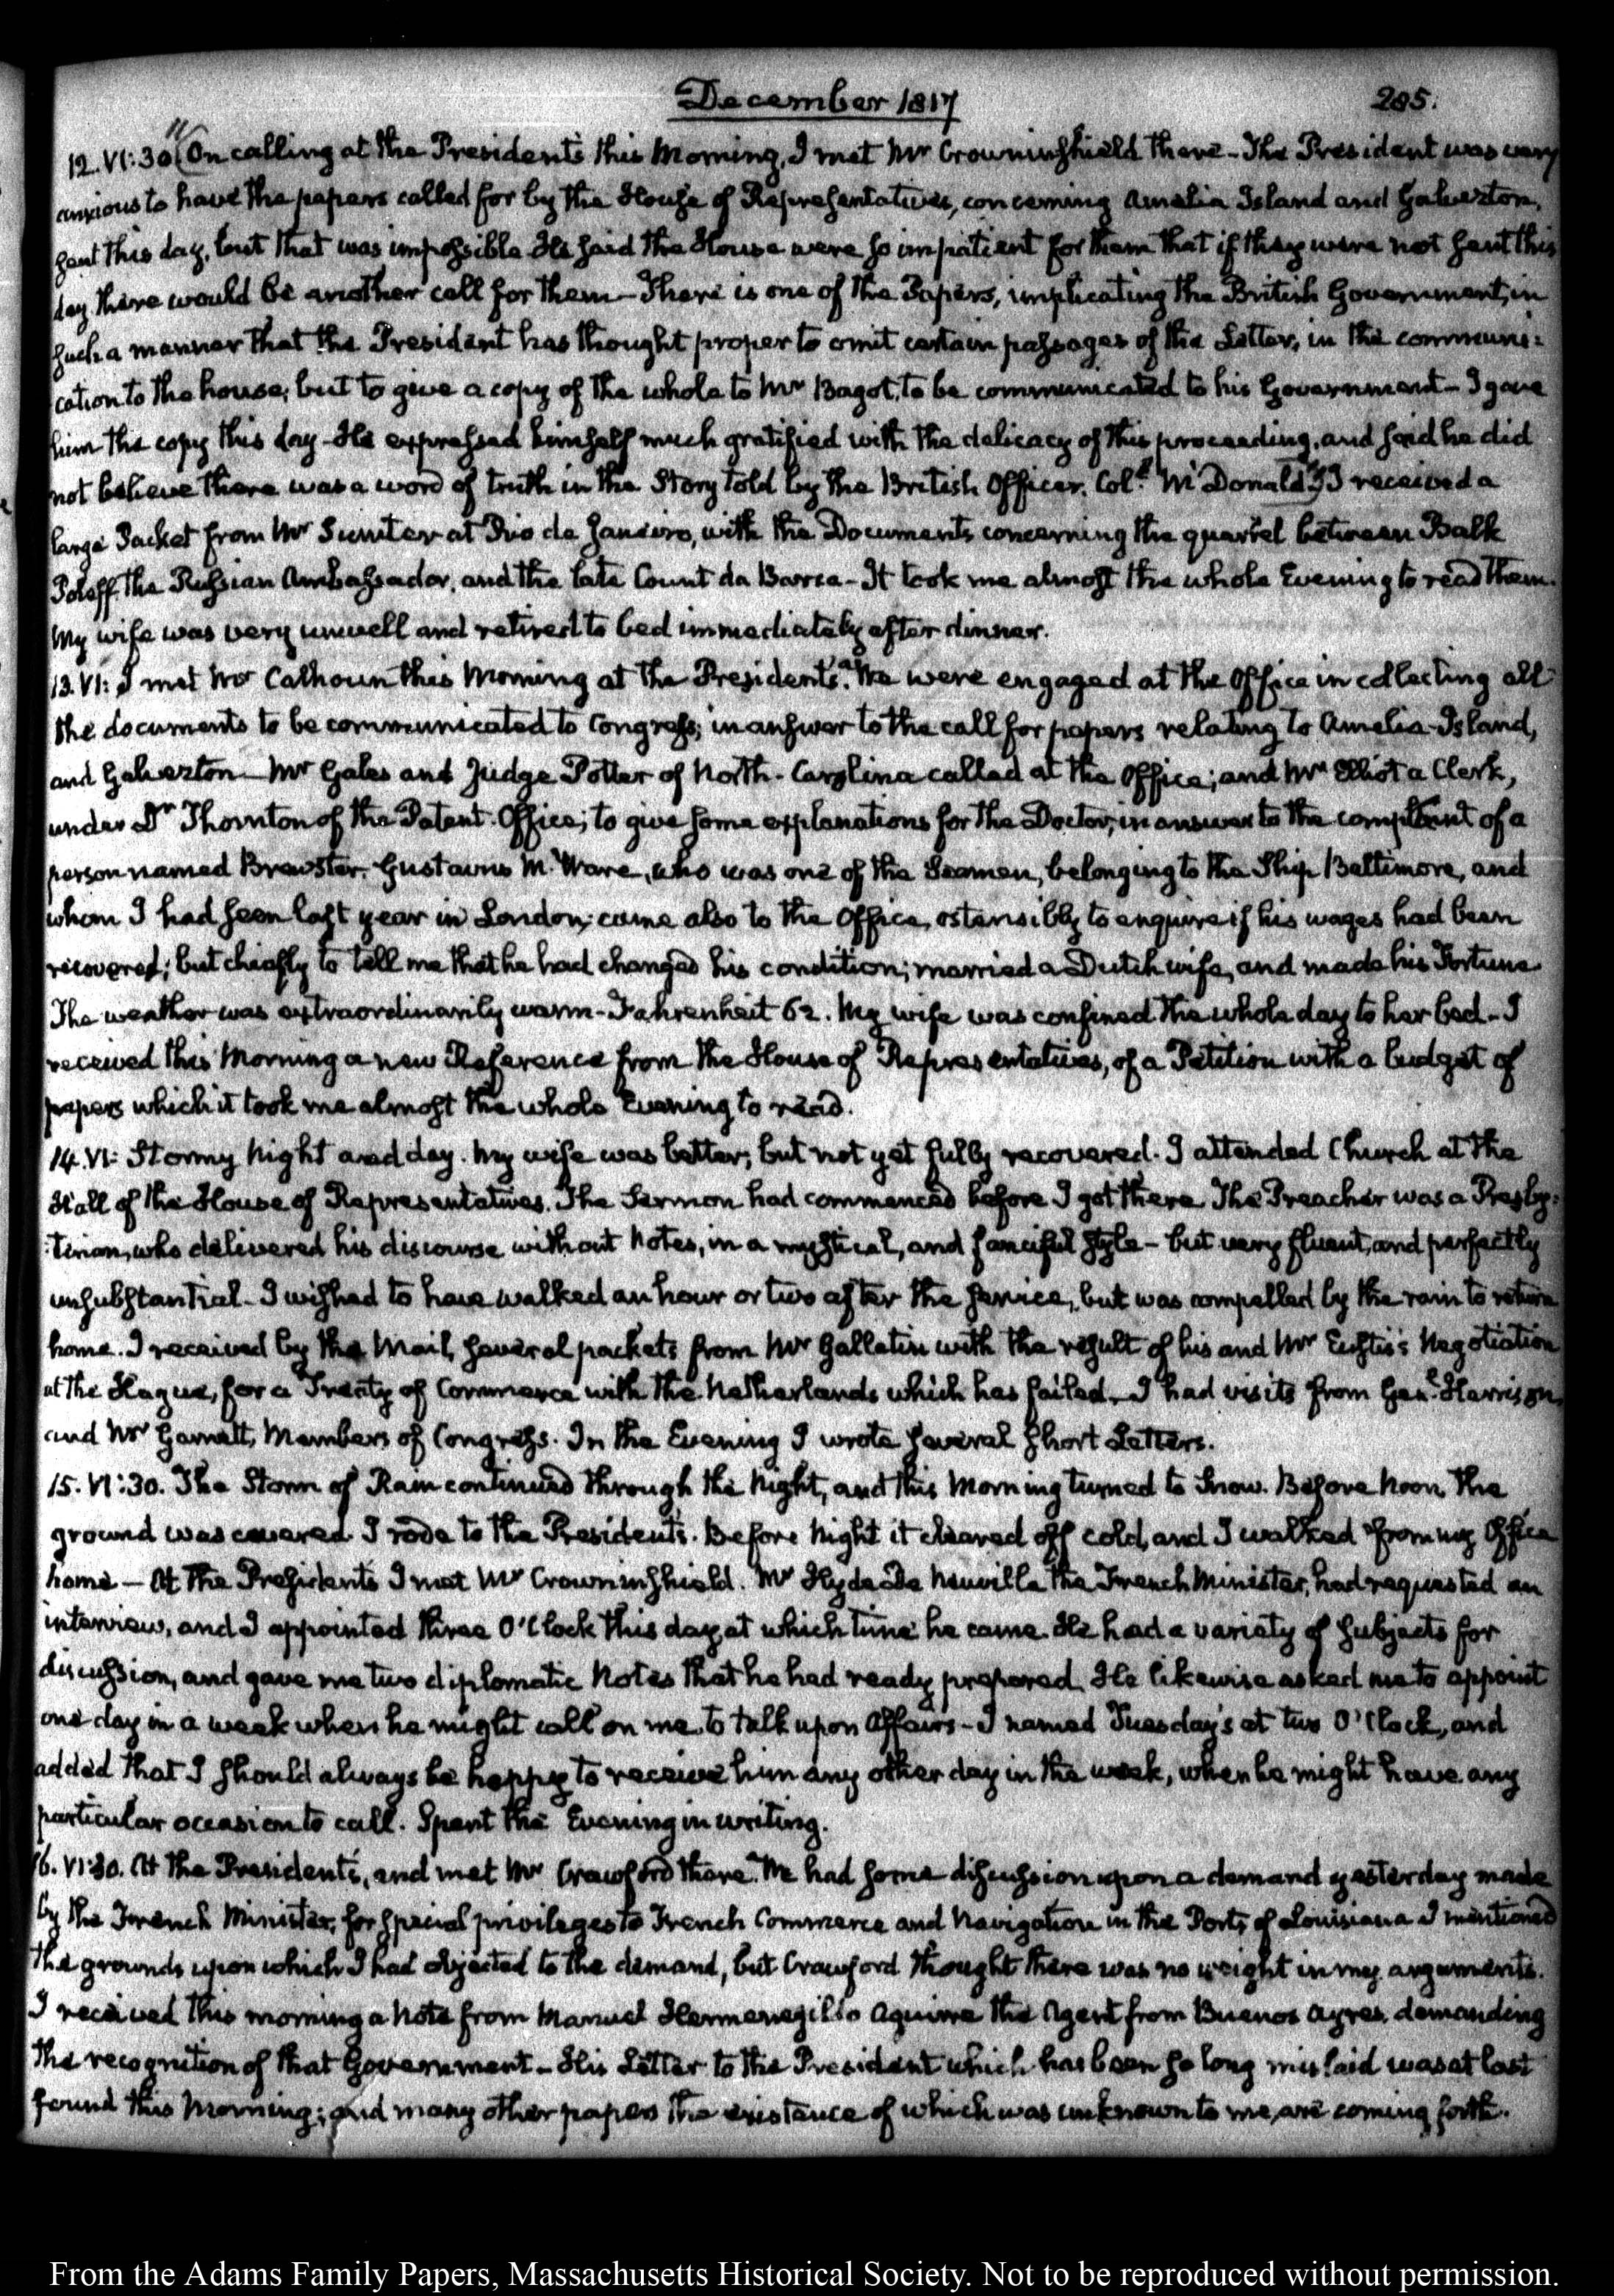 December 1817
285.
12. VI:30. On calling at the President's this Morning, I met Mr Crowninshield there - The President was very
anxious to have the papers called for by the House of Representatives, concerning Amelia Island and Galvezton,
sent this day, but that was impossible. He said the House were so impatient for them that if they were not sent this
day there would be another call for them - There is one of the Papers, implicating the British Government, in
such a manner that the President has thought proper to omit certain passages of the Letter, in the communi:
cation to the house; but to give a copy of the whole to Mr Bagot, to be communicated to his Government - I gave
him the copy this day - He expressed himself much gratified with the delicacy of this proceeding, and said he did
not believe there was a word of truth in the Story told by the British Officer, Coll. McDonald. I received a
large Packet from Mr Sumter at Rio de Janeiro, with the Documents concerning the quarrel between Balk
Poleff the Russian Ambassador, and the late Count da Barca - It took me almost the whole Evening to read them.
My wife was very unwell and retired to bed immediately after dinner.
13. VI: I met Mr Calhoun this Morning at the President's. We were engaged at the Office in collecting all
the documents to be communicated to Congress; in answer to the call for papers relating to Amelia-Island,
and Galvezton - Mr Gales and Judge Potter of North-Carolina called at the Office; and Mr Elliot a Clerk,
under Dr Thornton of the Patent-Office; to give some explanations for the Doctor, in answer to the complaint of a
person named Brewster. Gustavus M. Ware, who was one of the Seamen, belonging to the Ship Baltimore, and
whom I had seen last year in London; came also to the Office, ostensibly to enquire if his wages had been
recovered; but chiefly to tell me that he had changed his condition; married a Dutch wife, and made his Fortune.
The weather was extraordinarily warm - Fahrenheit 62. My wife was confined the whole day to her bed - I
received this Morning a new Reference from the House of Representatives, of a Petition with a budget of
papers which it took me almost the whole Evening to read.
14. VI: Stormy Night and day. My wife was better, but not yet fully recovered. I attended Church at the
Hall of the House of Representatives. The Sermon had commenced before I got there. The Preacher was a Presby:
:terian, who delivered his discourse without Notes, in a mystical, and fanciful style - but very fluent, and perfectly
unsubstantial - I wished to have walked an hour or two after the service, but was compelled by the rain to return
home. I received by the Mail, several packets from Mr Gallatin with the result of his and Mr Eustis's Negotiation
at the Hague, for a Treaty of Commerce with the Netherlands which has failed - I had visits from Genl. Harrison,
and Mr Garnett, Members of Congress. In the Evening I wrote several short Letters.
15. VI:30. The Storm of Rain continued through the Night, and this Morning turned to Snow. Before Noon the
ground was covered. I rode to the President's. Before Night it cleared off cold, and I walked from my Office
home - At the President's I met Mr Crowninshield. Mr Hyde De Neuville the French Minister, had requested an
interview, and I appointed three O'Clock this day, at which time he came. He had a variety of subjects for
discussion, and gave me two diplomatic Notes that he had ready prepared. He likewise asked me to appoint
one day in a week when he might call on me to talk upon Affairs - I named Tuesday's at two O'Clock, and
added that I should always be happy to receive him any other day in the week, when he might have any
particular occasion to call. Spent the Evening in writing.
16. VI:30. At the President's, and met Mr Crawford there. We had some discussion upon a demand yesterday made
by the French Minister, for special privileges to French Commerce and Navigation in the Ports of Louisiana. I mentioned
the grounds upon which I had objected to the demand, but Crawford thought there was no weight in my arguments.
I received this morning a Note from Manuel Hermenegildo Aguirre the Agent from Buenos Ayres, demanding
the recognition of that Government - His Letter to the President which has been so long mislaid was at last
found this Morning; and many other papers the existence of which was unknown to me, are coming forth.
From the Adams Family Papers, Massachusetts Historical Society. Not to be reproduced without permission.